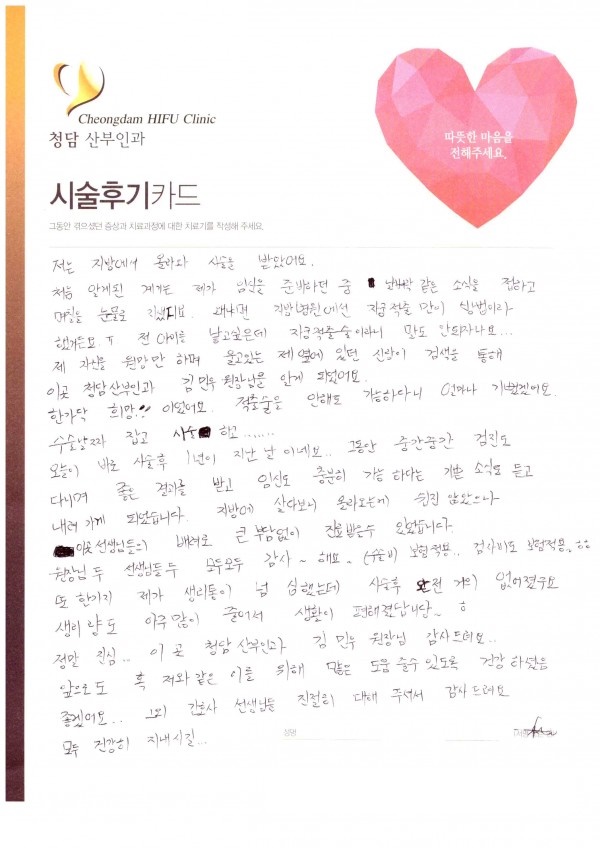 Cheongdam HIFU Clinic
청담 산부인과
따뜻한 마음을
전해주세요.
시술후기카드
그동안 겪으셨던 증상과 치료과정에 대한 치료기를 작성해 주세요.
저는 지방에서 올라와 시술을 받았어요.
처음 알게된 계기는 제가 임신을 준비하던 중 날벼락 같은 소식을 접하고
며칠을 눈물로 지냈지요. 왜냐면 지방병원에선 자궁적출 만이 방법이라
했거든요. ㅠ 전 아이를 낳고싶은데 자궁적출수술이라니 말도 안되자나요...
제 자신을 원망만 하며 울고있는 제 옆에 있던 신랑이 검색을 통해
이곳 청담산부인과 김민우 원장님을 알게 되었어요.
한가닥 희망!! 이었어요. 적출술을 안해도 가능하다니 얼마나 기뻤겠어요.
수술날짜 잡고 시술 하고.......
오늘이 바로 시술후 1년이 지난 날 이네요.. 그동안 중간중간 검진도
다니며 좋은 결과를 받고 임신도 충분히 가능 하다는 기쁜 소식도 듣고
내려 가게 되었습니다. 지방에 살다보니 올라오는게 쉽진 않았으나
이곳 선생님들의 배려로 큰 부담없이 진료받을수 있었습니다.
원장님 두 선생님들 두 모두모두 감사~ 해요~ (수술비 보험적용.. 검사비도 보험적용.. ㅎㅎ
또 한가지 제가 생리통이 넘 심했는데 시술후 완전 거의 없어졌구요
생리량도 아주 많이 줄어서 생활이 편해졌답니다~ ㅎ
정말 진심.. 이 곳 청담산부인과 김민우 원장님 감사드려요..
앞으로도 혹 저와같은 이를 위해 많은 도움 줄수 있도록 건강 하셨음
좋겠어요.. 그외 간호사 선생님들 친절히 대해 주셔서 감사드려요
모두 건강히 지내시길...
성명